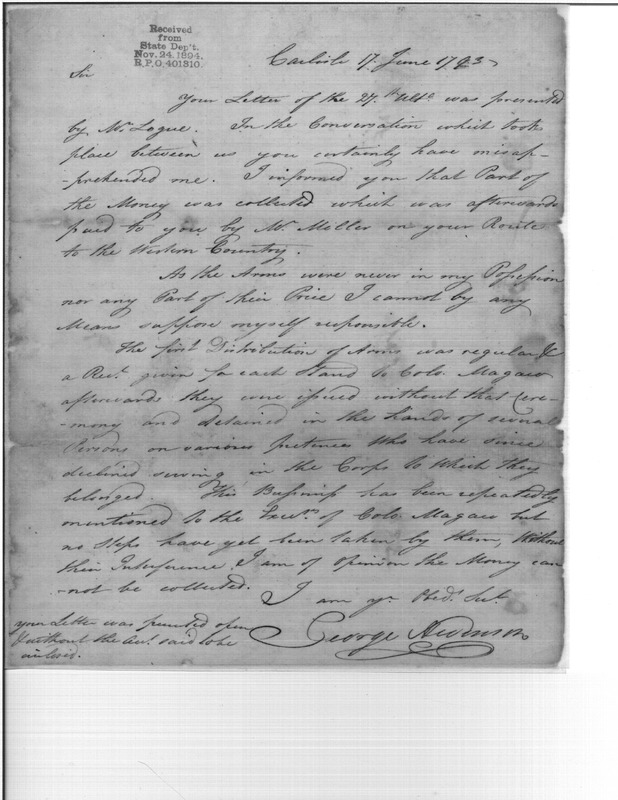 Received
from
State Dep't.
Nov. 24. 1894.
R.P.O. 401310.
Carlisle 17 June 1793
Sir
Your Letter of the 27th Ulto. was presented
by Mr. Logue. In the Conversation which took
place between us you certainly have misap-
-prehended me. I informed you that Part of
the Money was collected which was afterwards
paid to you by Mr. Miller on your Route
to the Western Country.
As the Arms were never in my Possession
nor any Part of their Price I cannot by any
Mean suppose myself responsible.
The first Distribution of Arms was regular &
a Rect. given for each Stand to Colo. Magaw
afterwards they were issued without that Cere-
-mony and detained in the hands of several
Persons on various pretences who have since
declined serving in the Corps to which they
belonged. This Bussiness has been repeatedly
mentioned to the Exectrs. of Colo. Magaw but
no Steps have yet been taken by them, Without
their Interference I am of opinion the Money can
-not be collected.
I am yr. Obedt. Sert.
George
your Letter was handed open
& without the said to be
inclosed.